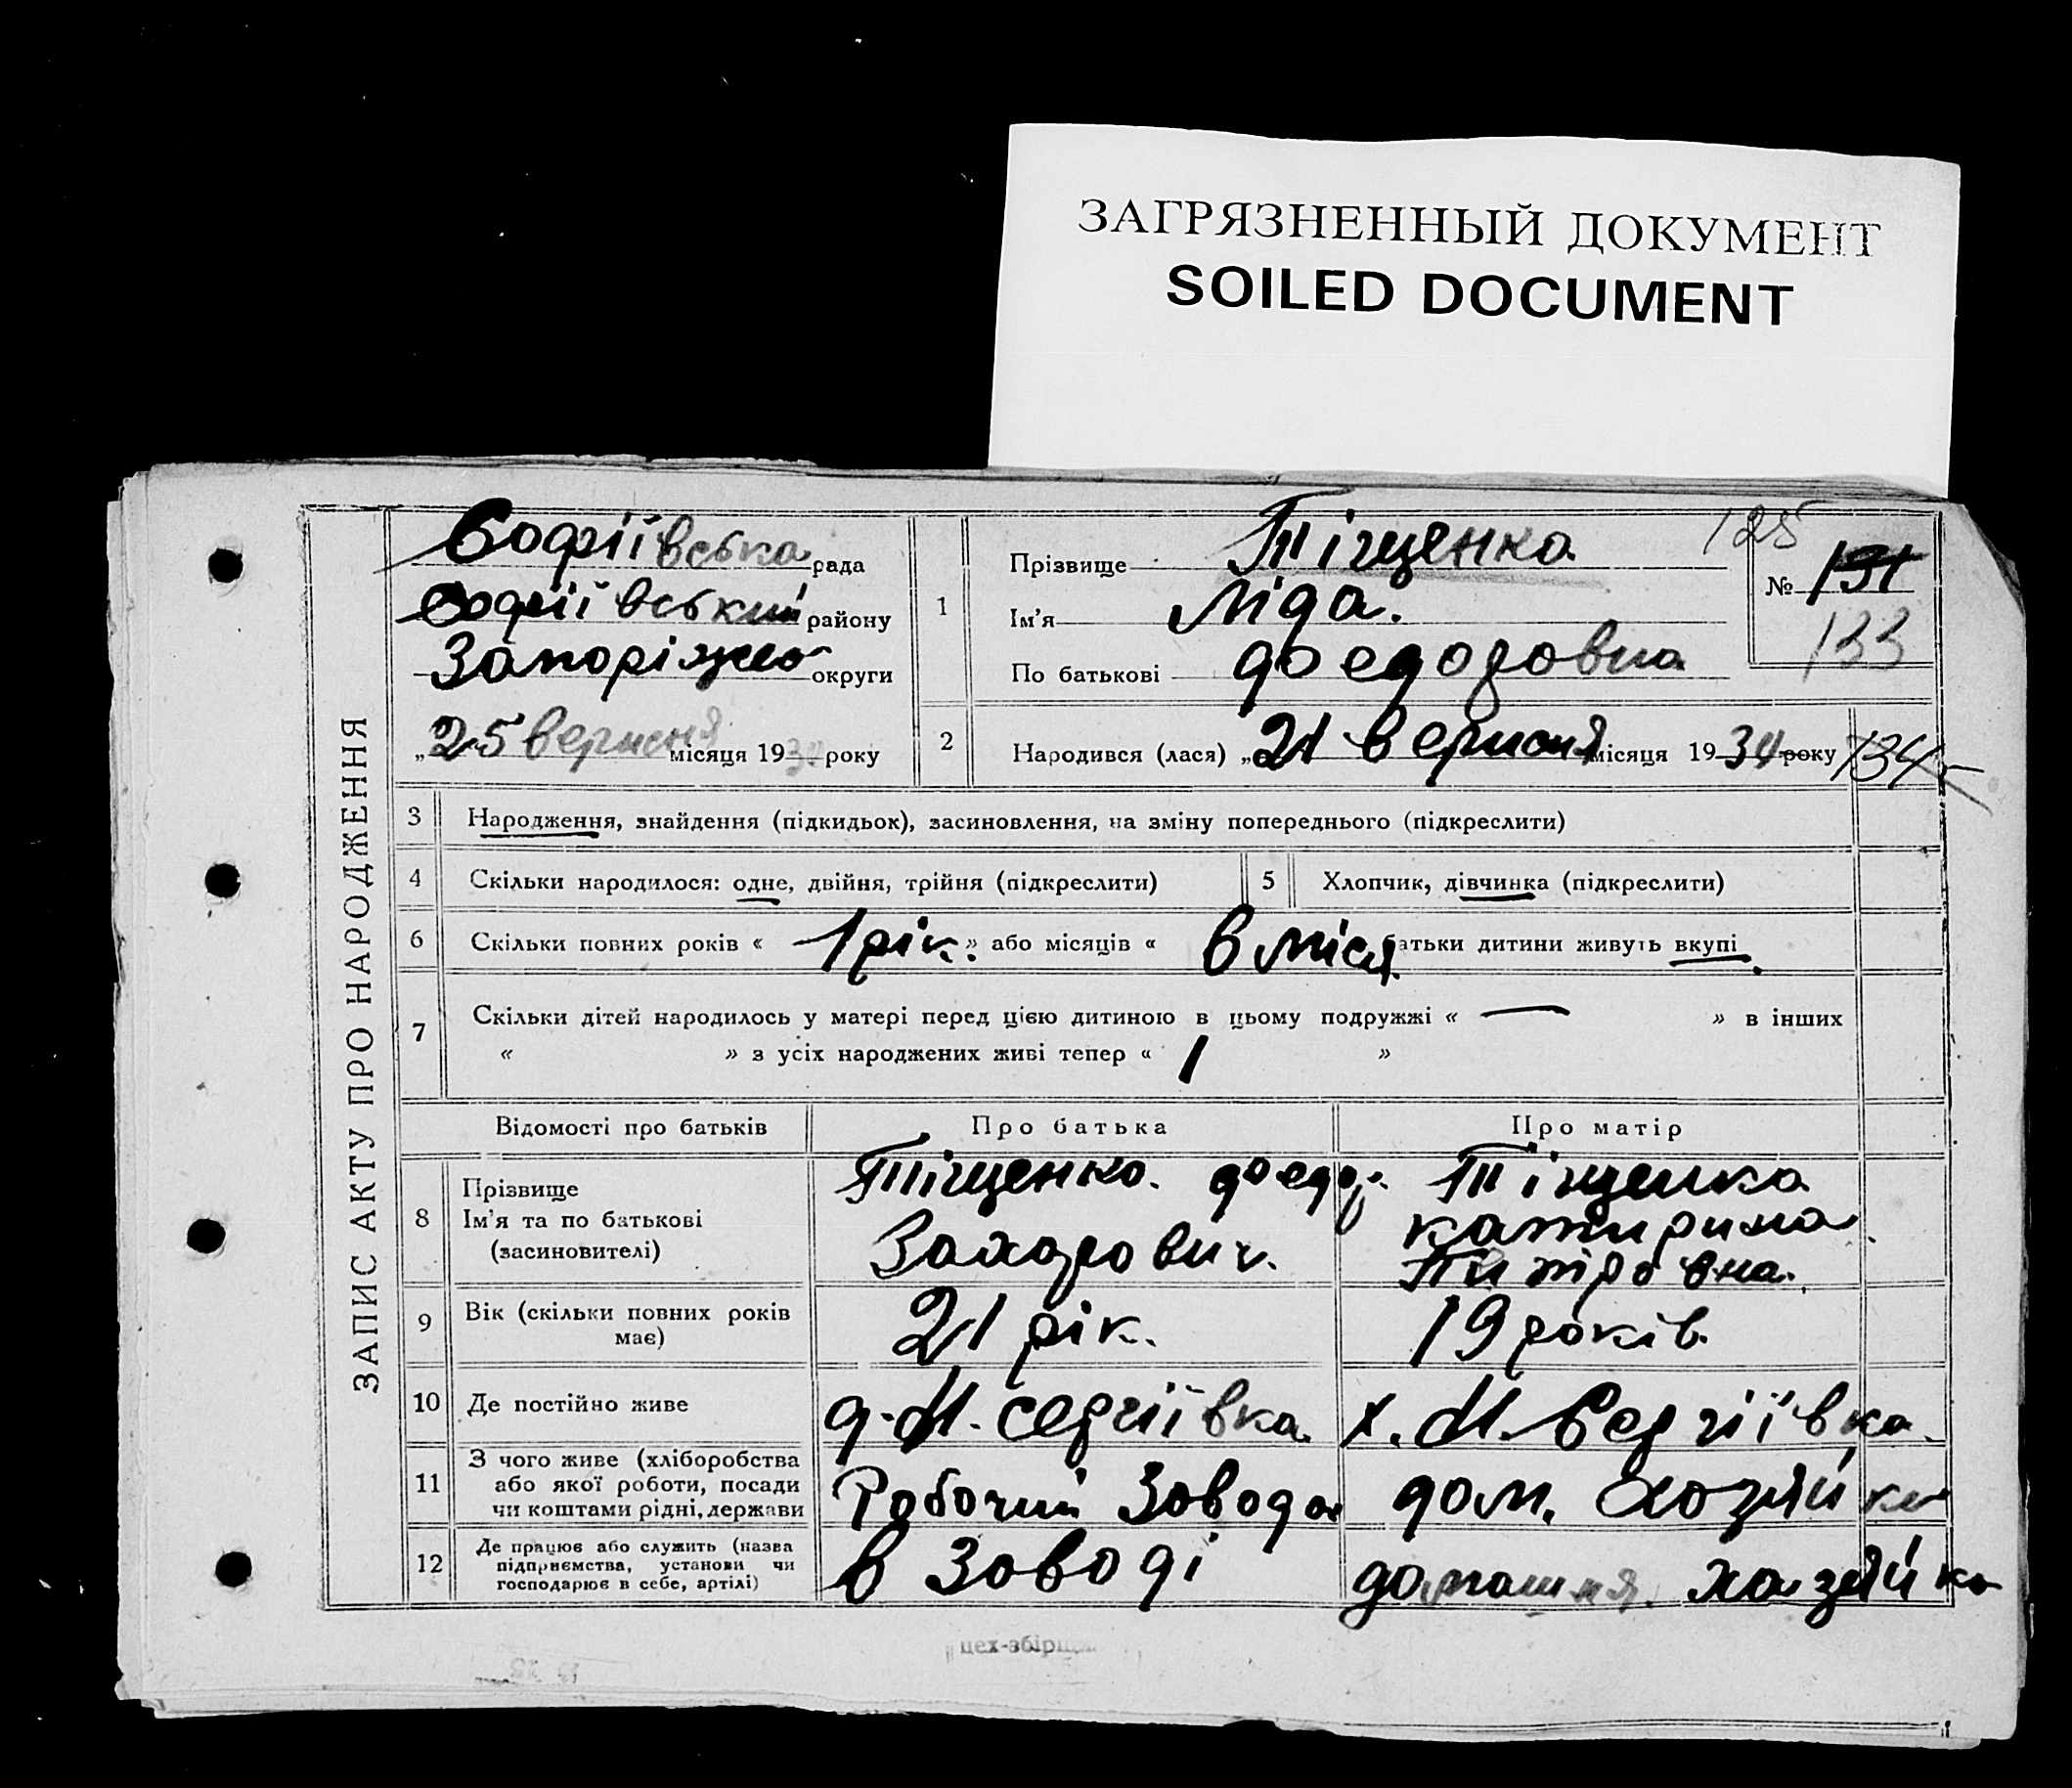 ЗАГРЯЗНЕННЫЙ ДОКУМЕНТ
SOILED DOCUMENT
ЗАПИС АКТУ ПРО НАРОДЖЕННЯ
Софіївська рада
Софіївський району
Запоріжжо округи
„25 вересня місяця 1930 року
1
Прізвище Тіщенко
Ім'я Ліда.
По батькові Фоедоровна
125
№ 131
133
2 Народився (лася) „21 вересня місяця 1930 року 134
3 Народження, знайдення (підкидьок), засиновлення, на зміну попереднього (підкреслити)
4 Скільки народилося: одне, двійня, трійня (підкреслити)
5 Хлопчик, дівчинка (підкреслити)
6 Скільки повних років « 1 рік. » або місяців « 6 місяц. батьки дитини живуть вкупі
7 Скільки дітей народилось у матері перед цією дитиною в цьому подружжі « — » в інших
« » з усіх народжених живі тепер « 1 »
Відомості про батьків Про батька Про матір
8 Прізвище
Ім'я та по батькові
(засиновителі)
Тіщенко. Фоедор.
Захарович.
Тіщенко
Катирина
Питровна.
9 Вік (скільки повних років
має)
21 рік. 19 років.
10 Де постійно живе
д. М. Сергіївка. х. М. Сергіївка.
11 З чого живе (хліборобства
або якої роботи, посади
чи коштами рідні, держави
Робочий Завода дом. хозяйка
12 Де працює або служить (назва
підприємства, установи чи
господарює в себе, артілі)
в Заводі домашня. хазяйка